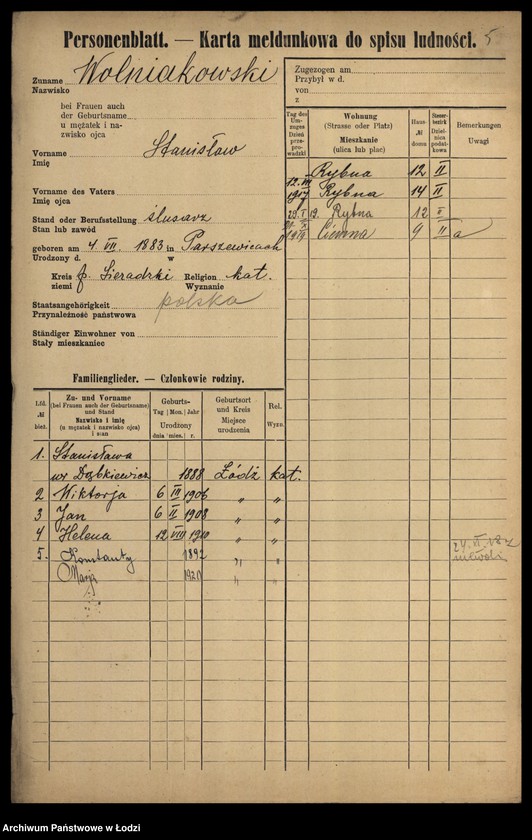 Personenblatt. — Karta meldunkowa do spisu ludności. 5
Zuname Wolniakowski
Nazwisko
bei Frauen auch
der Geburtsname
u mężatek i na-
zwisko ojca
Vorname Stanisław
Imię
Vorname des Vaters
Imię ojca
Stand oder Berufsstellung ślusarz
Stan lub zawód
geboren am 4 VII. 1883 in Parszewicach
Urodzony d. w
Kreis p. Sieradzki Religion kat.
ziemi Wyznanie
Staatsangehörigkeit polska
Przynależność państwowa
Ständiger Einwohner von
Stały mieszkaniec
Zugezogen am
Przybył w d.
von
z
Tag des Um-zuges Dzień prze-pro-wadzki
Wohnung (Strasse oder Platz) Mieszkanie (ulica lub plac)
Haus-№ domu
Steuer-bezirk Dzielnica podat-kowa
Bemerkungen Uwagi
Rybna 12 II
12. III 1917 Rybna 14 II
29. I 19. Rybna 12 II
Ciemna 9 II a
Familienglieder. — Członkowie rodziny.
Lfd. № bież.
Zu- und Vorname (bei Frauen auch der Geburtsname) und Stand Nazwisko i imię (u mężatek i nazwisko ojca) i stan
Geburts- Tag Mon. Jahr Urodzony dnia mies. r.
Geburtsort und Kreis Miejsce urodzenia
Rel. Wyzn.
1. Stanisława
wr Dąbkiewicz 1888 Łódź kat.
2 Wiktorja 6 III 1906 " "
3 Jan 6 II 1908 " "
4 Helena 12 VIII 1910 " "
5. Konstanty 1892 " "
Marja 1920 " "
Archiwum Państwowe w Łodzi